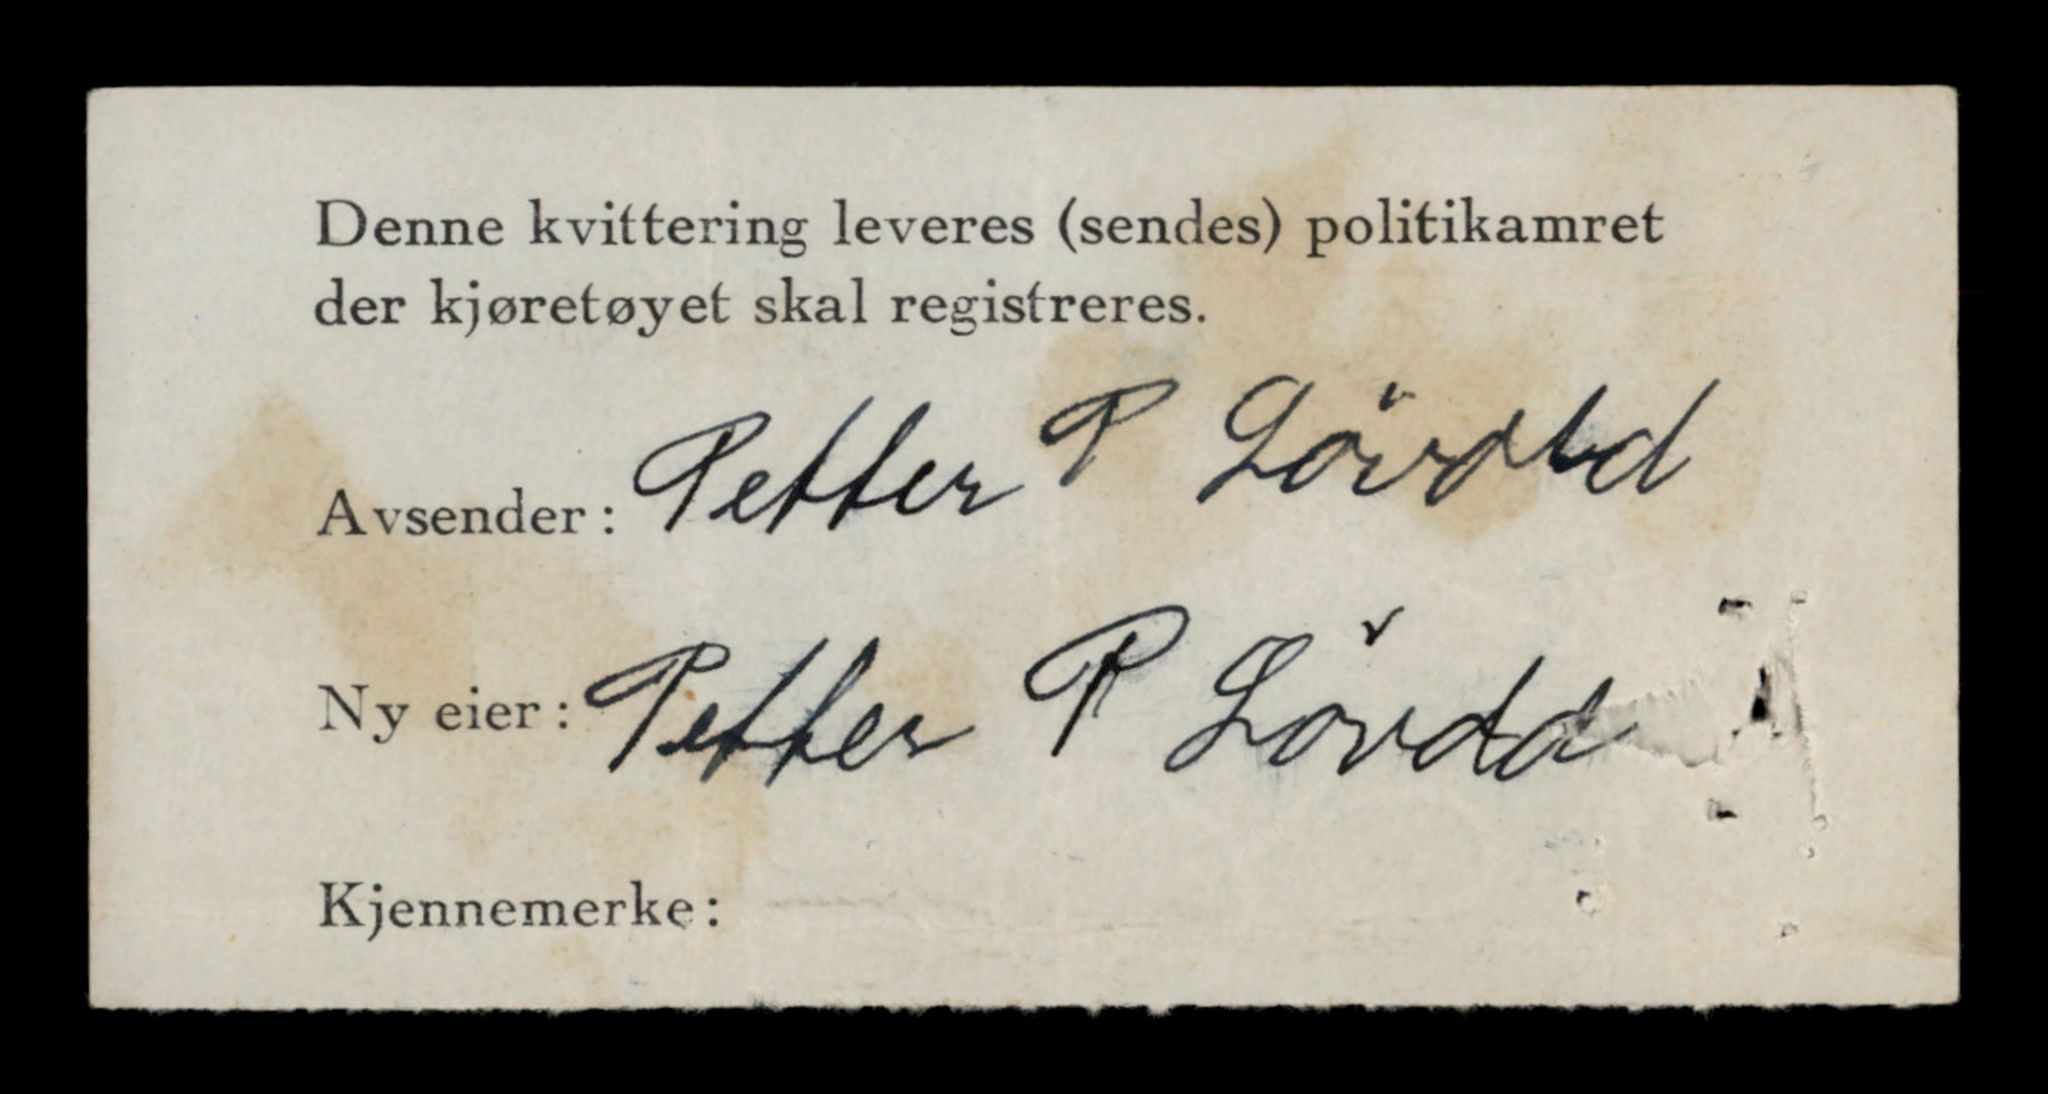 Denne kvittering leveres (sendes) politikamret
der kjøretøyet skal registreres.
Avsender: Petter P
Ny eier: Petter P Lövdal
Kjennemerke: